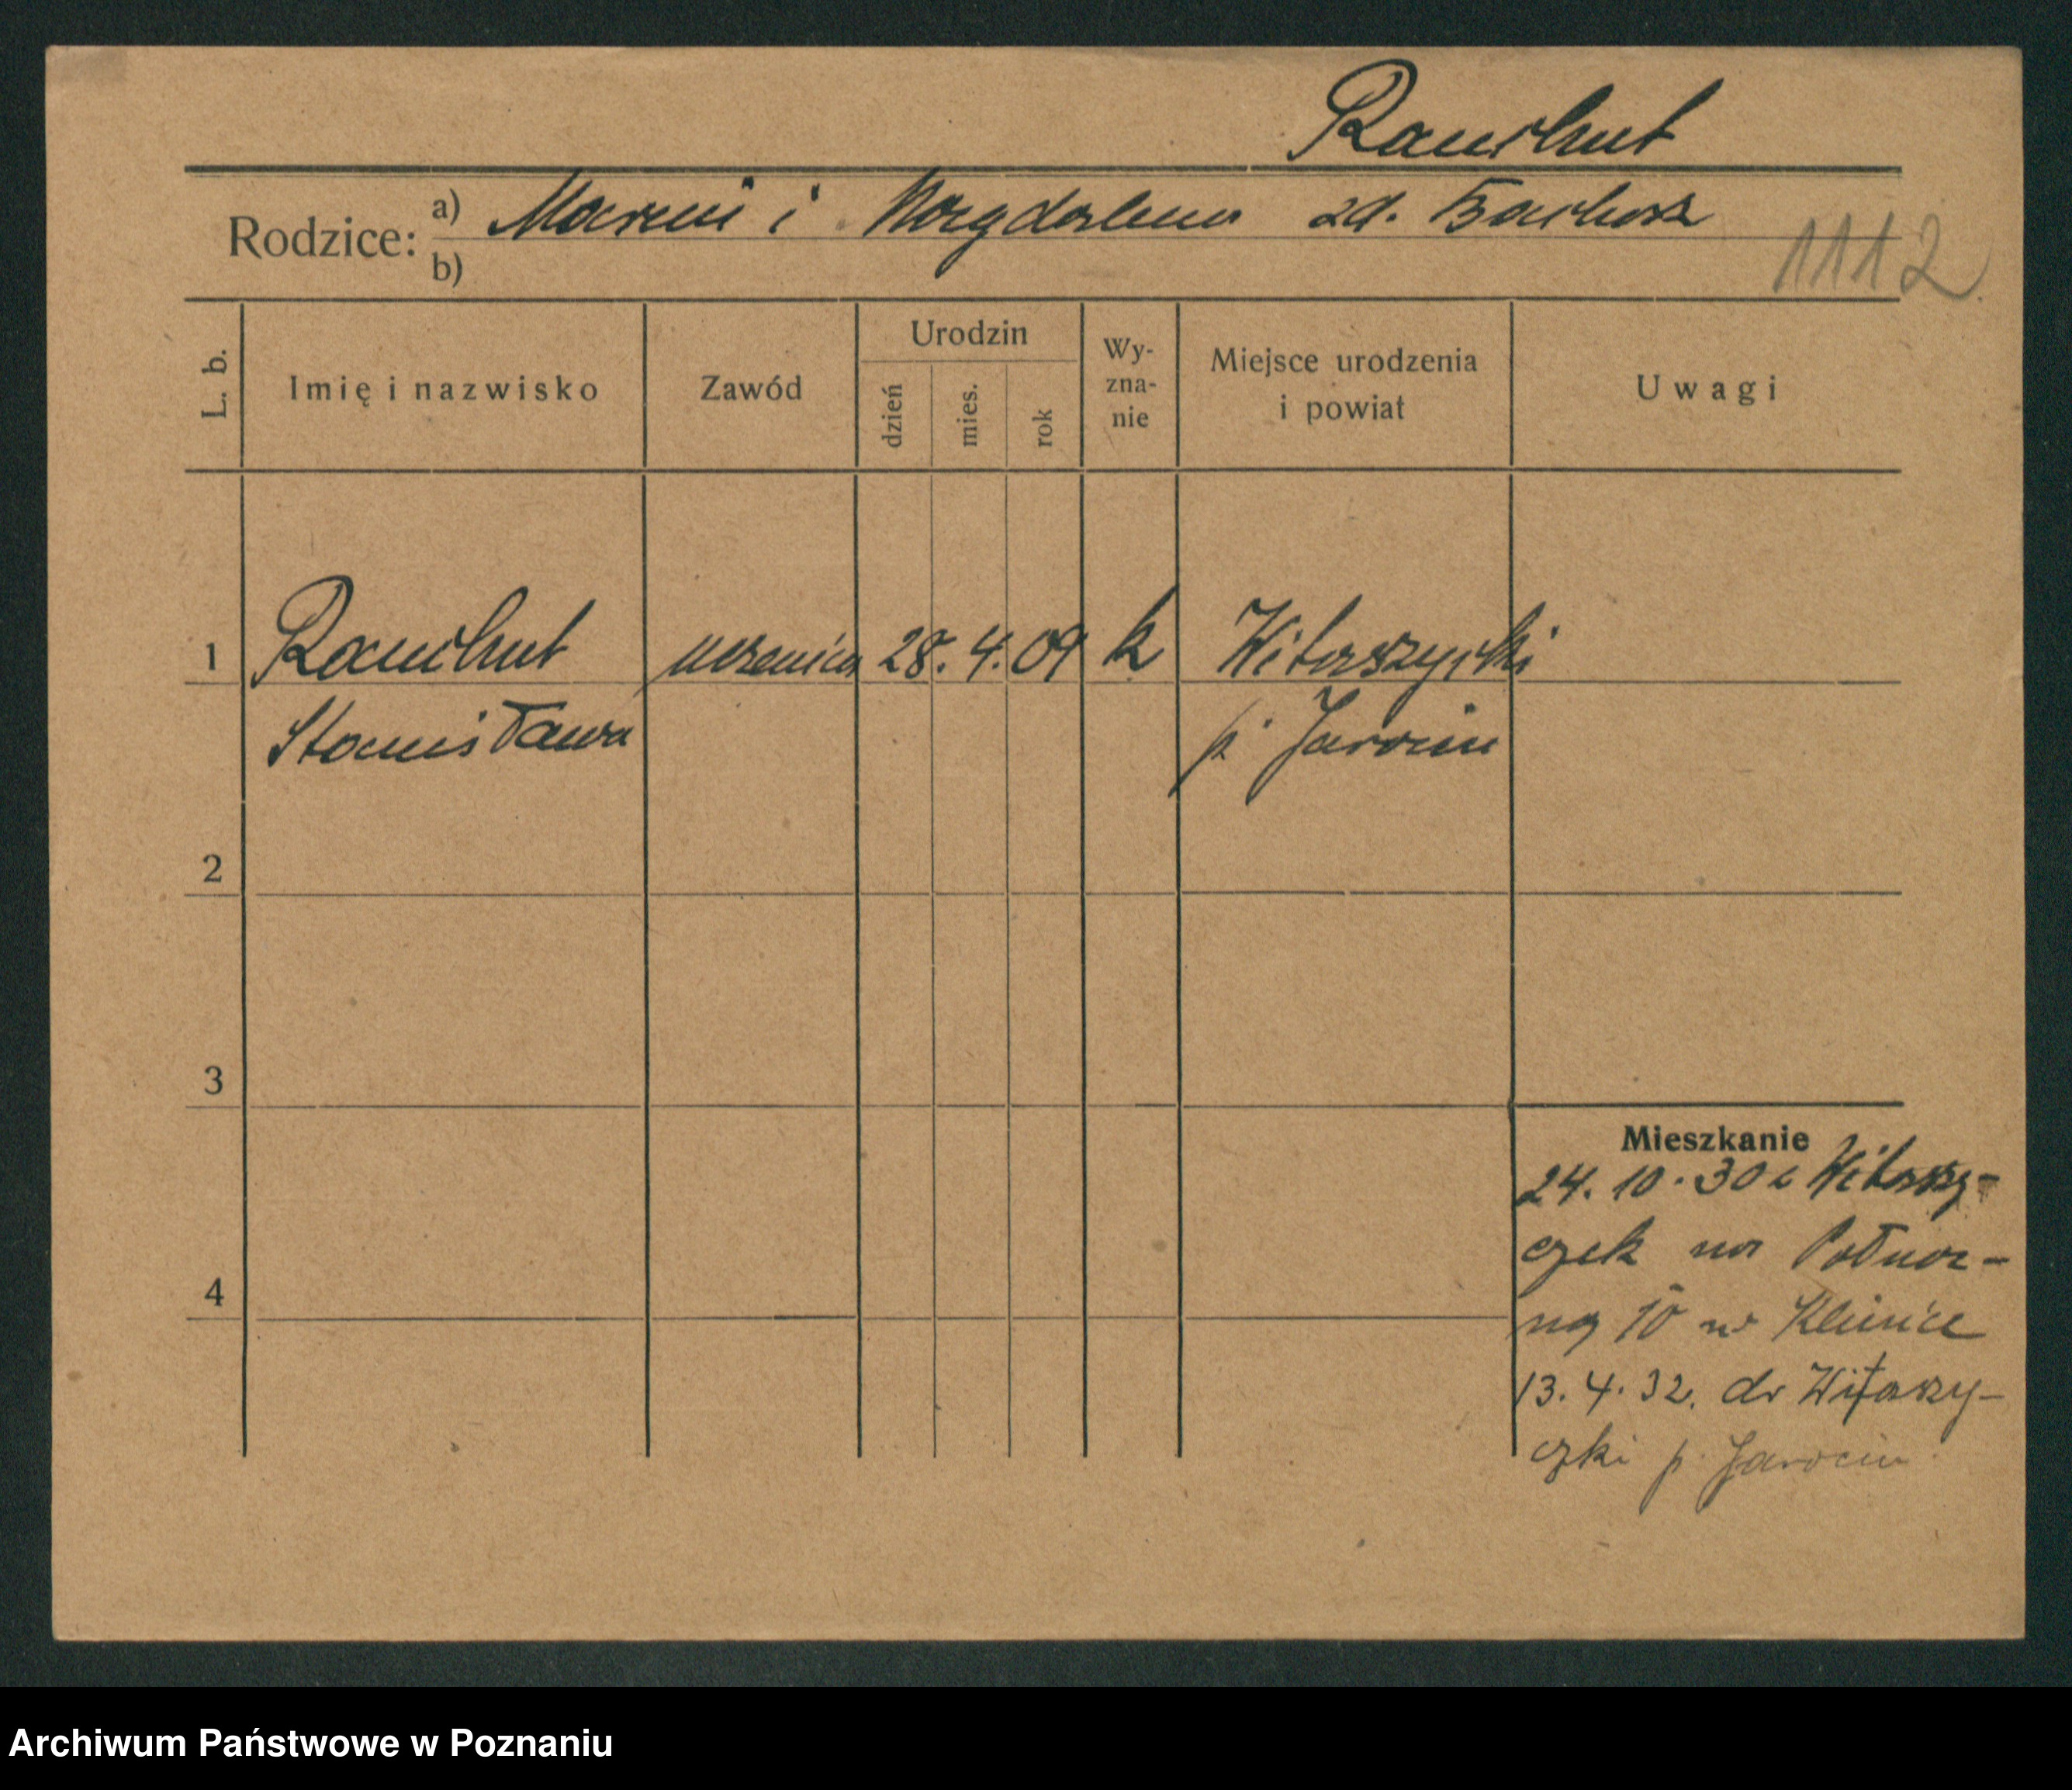 Rauhut
Rodzice: a) Marcin i Magdalena zd.
b)
1112
L. b.
Imię i nazwisko
Zawód
Urodzin
dzień
mies.
rok
Wy-
zna-
nie
Miejsce urodzenia
i powiat
Uwagi
1 Rauhut uczenica 28. 4. 09 k Witaszyczki
Stanisława p. Jarocin
2
3
4
Mieszkanie
24. 10. 30 z Witaszy-
czek na Połwiej-
10 w Klinice
13. 4. 32. do Witaszy-
czki p. Jarocin.
Archiwum Państwowe w Poznaniu